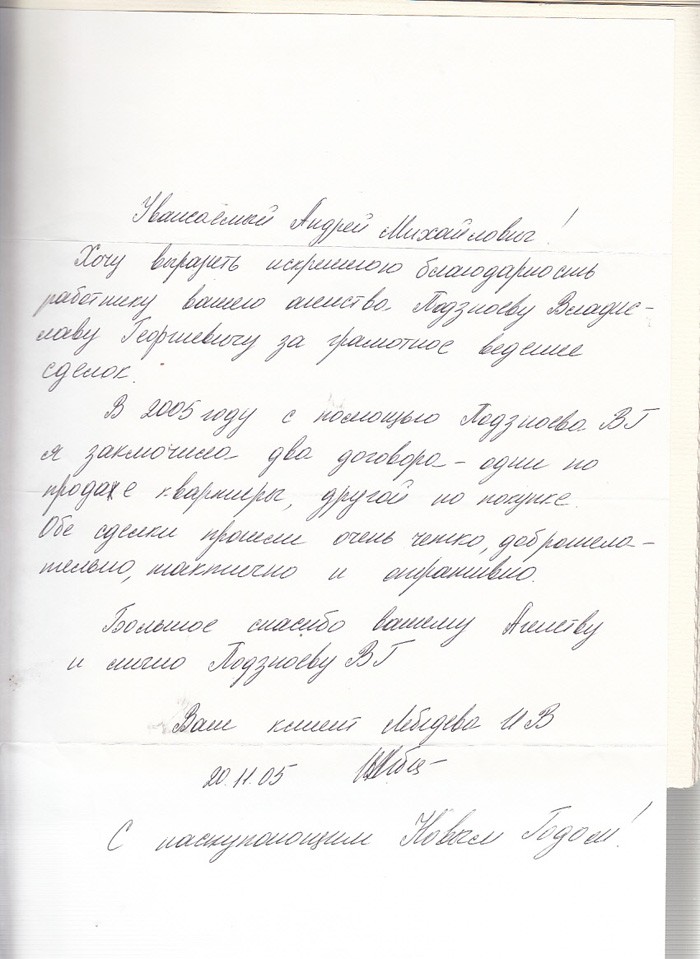 Уважаемый Андрей Михайлович!
Хочу выразить искреннюю благодарность
работнику вашего агенства Подзноеву Владис-
лаву Георгиевичу за грамотное ведение
сделок.
В 2005 году с помощью Подзноева ВГ
я заключила два договора – один по
продаже квартиры, другой по покупке.
Обе сделки прошли очень четко, доброжела-
тельно, тактично и оперативно.
Большое спасибо вашему Агенству
и лично Подзноеву ВГ
Ваш клиент Лебедева И В
20.11.05
С наступающим Новым Годом!